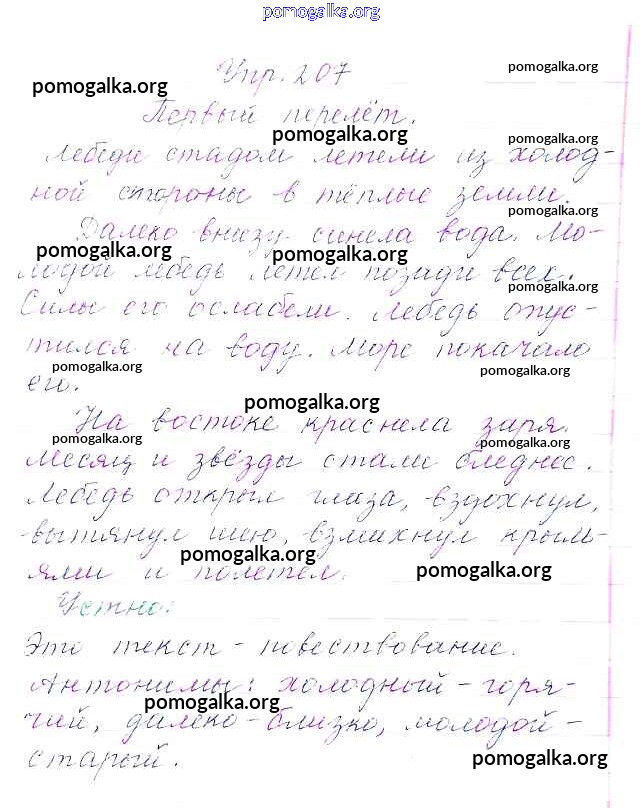 pomogalka.org
Упр. 207
pomogalka.org
pomogalka.org
Первый перелёт.
pomogalka.org
pomogalka.org
Лебеди стадом летели из холод-
ной стороны в тёплые земли.
pomogalka.org
Далеко внизу синела вода. Мо-
pomogalka.org
pomogalka.org
лодой лебедь летел позади всех.
pomogalka.org
Силы его ослабели. Лебедь опус-
тился на воду. Море покачало
pomogalka.org
pomogalka.org
его.
pomogalka.org
На востоке краснела заря.
pomogalka.org
pomogalka.org
Месяц и звёзды стали бледнее.
Лебедь открыл глаза, вздохнул,
вытянул шею, взмахнул крыль-
pomogalka.org
pomogalka.org
ями и полетел.
Устно:
Это текст - повествование.
Антонимы: холодный - горя-
pomogalka.org
чий, далеко - близко, молодой -
старый.
pomogalka.org